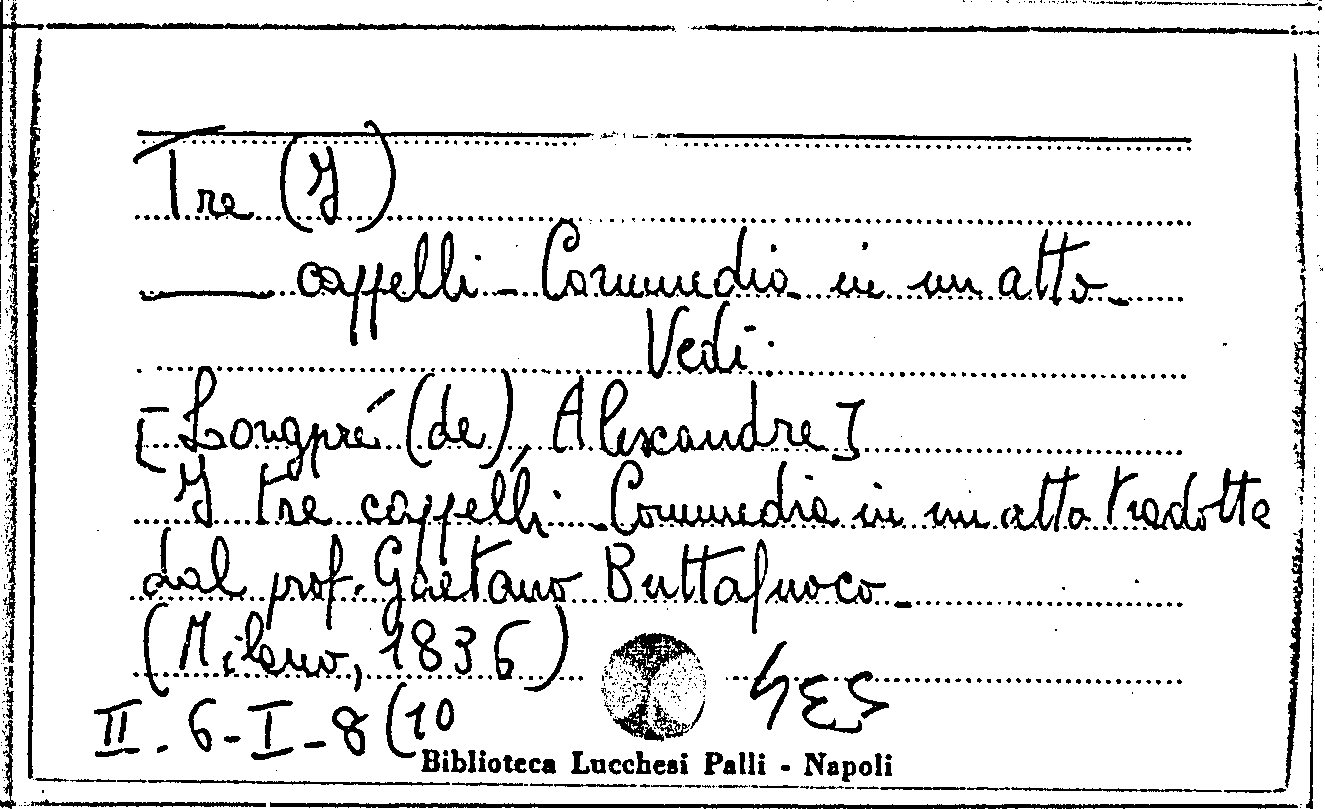 Tre (I)
cappelli - Commedia in un atto -
Vedi:
[Longpré (de), Alexandre]
I tre cappelli - Commedia in un atto tradotta
dal prof. Gaetano Buttafuoco -
(Milano, 1836)
II. 6 - I - 8 (10
Biblioteca Lucchesi Palli - Napoli